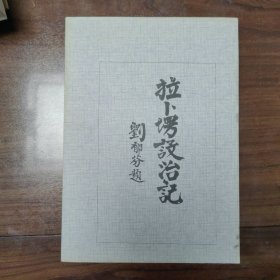 拉卜塄設治記
劉郁芬題